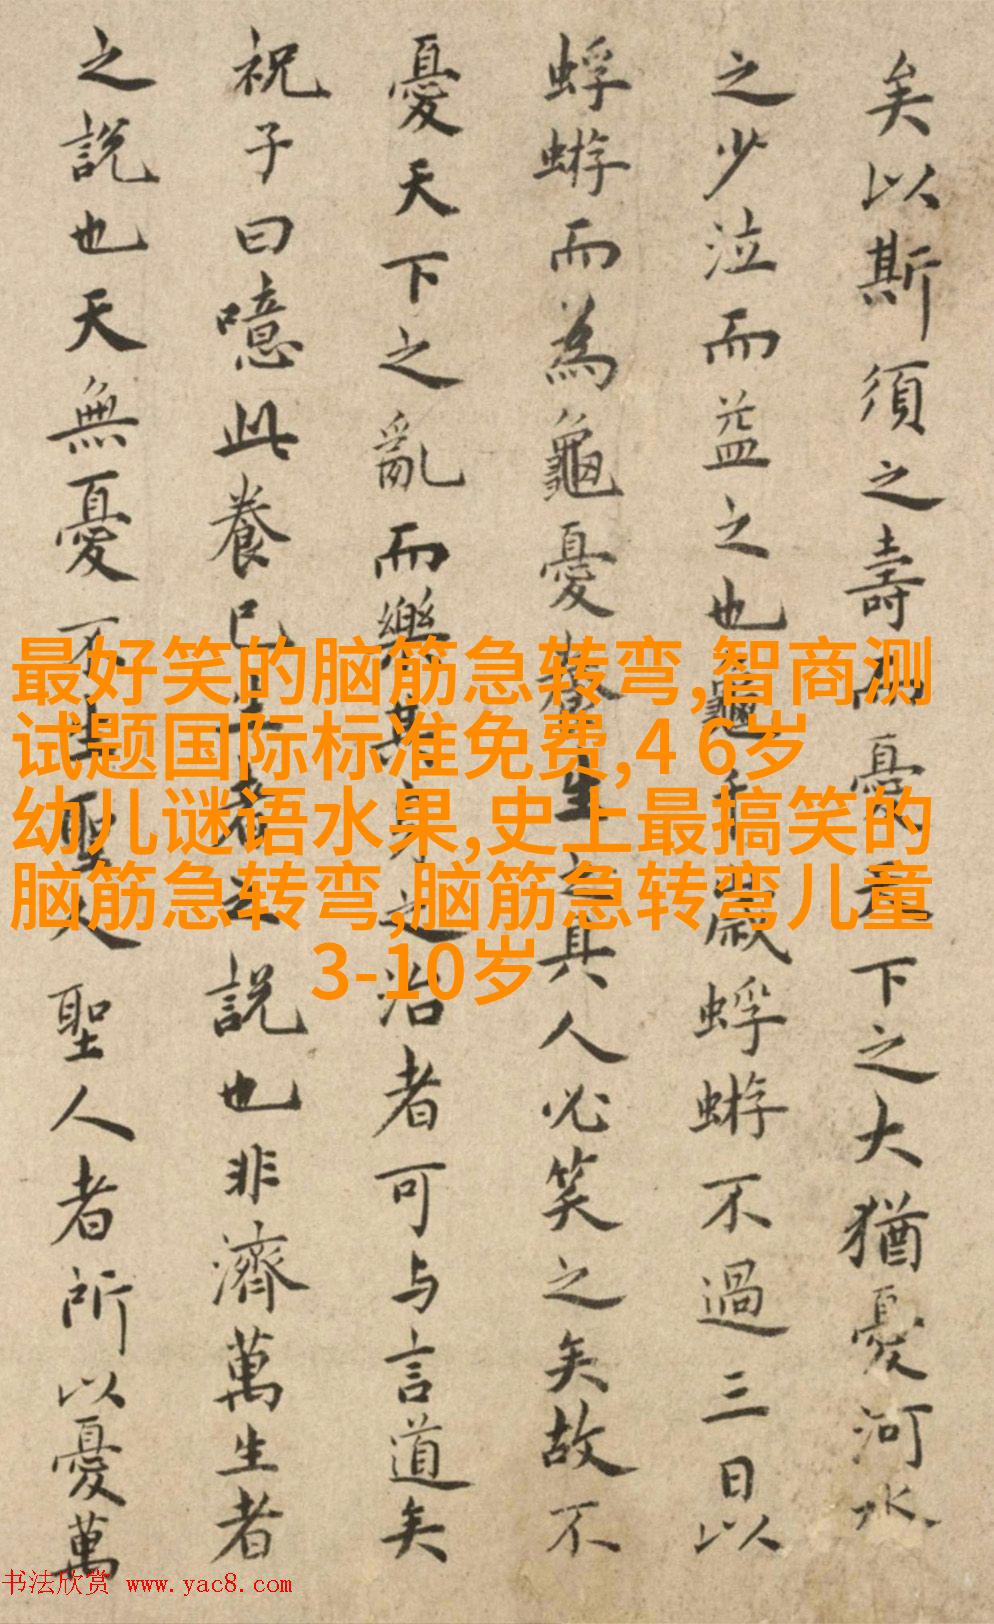 矣以斯須之壽而憂天下之大猶憂河水
之少泣而益之也龜千歲蜉蝣不過三日以
蜉蝣而為龜憂養生之具人必笑之矣故不
憂天下之亂而樂其身之治者可与言道矣
祝子曰噫此養已生者之說也非濟萬生者
之說也天無憂不生聖人聖人者所以憂萬
最好笑的脑筋急转弯,智商测
试题国际标准免费,4 6岁
幼儿谜语水果,史上最搞笑的
脑筋急转弯,脑筋急转弯儿童
3-10岁
书法欣赏 www.yac8.com